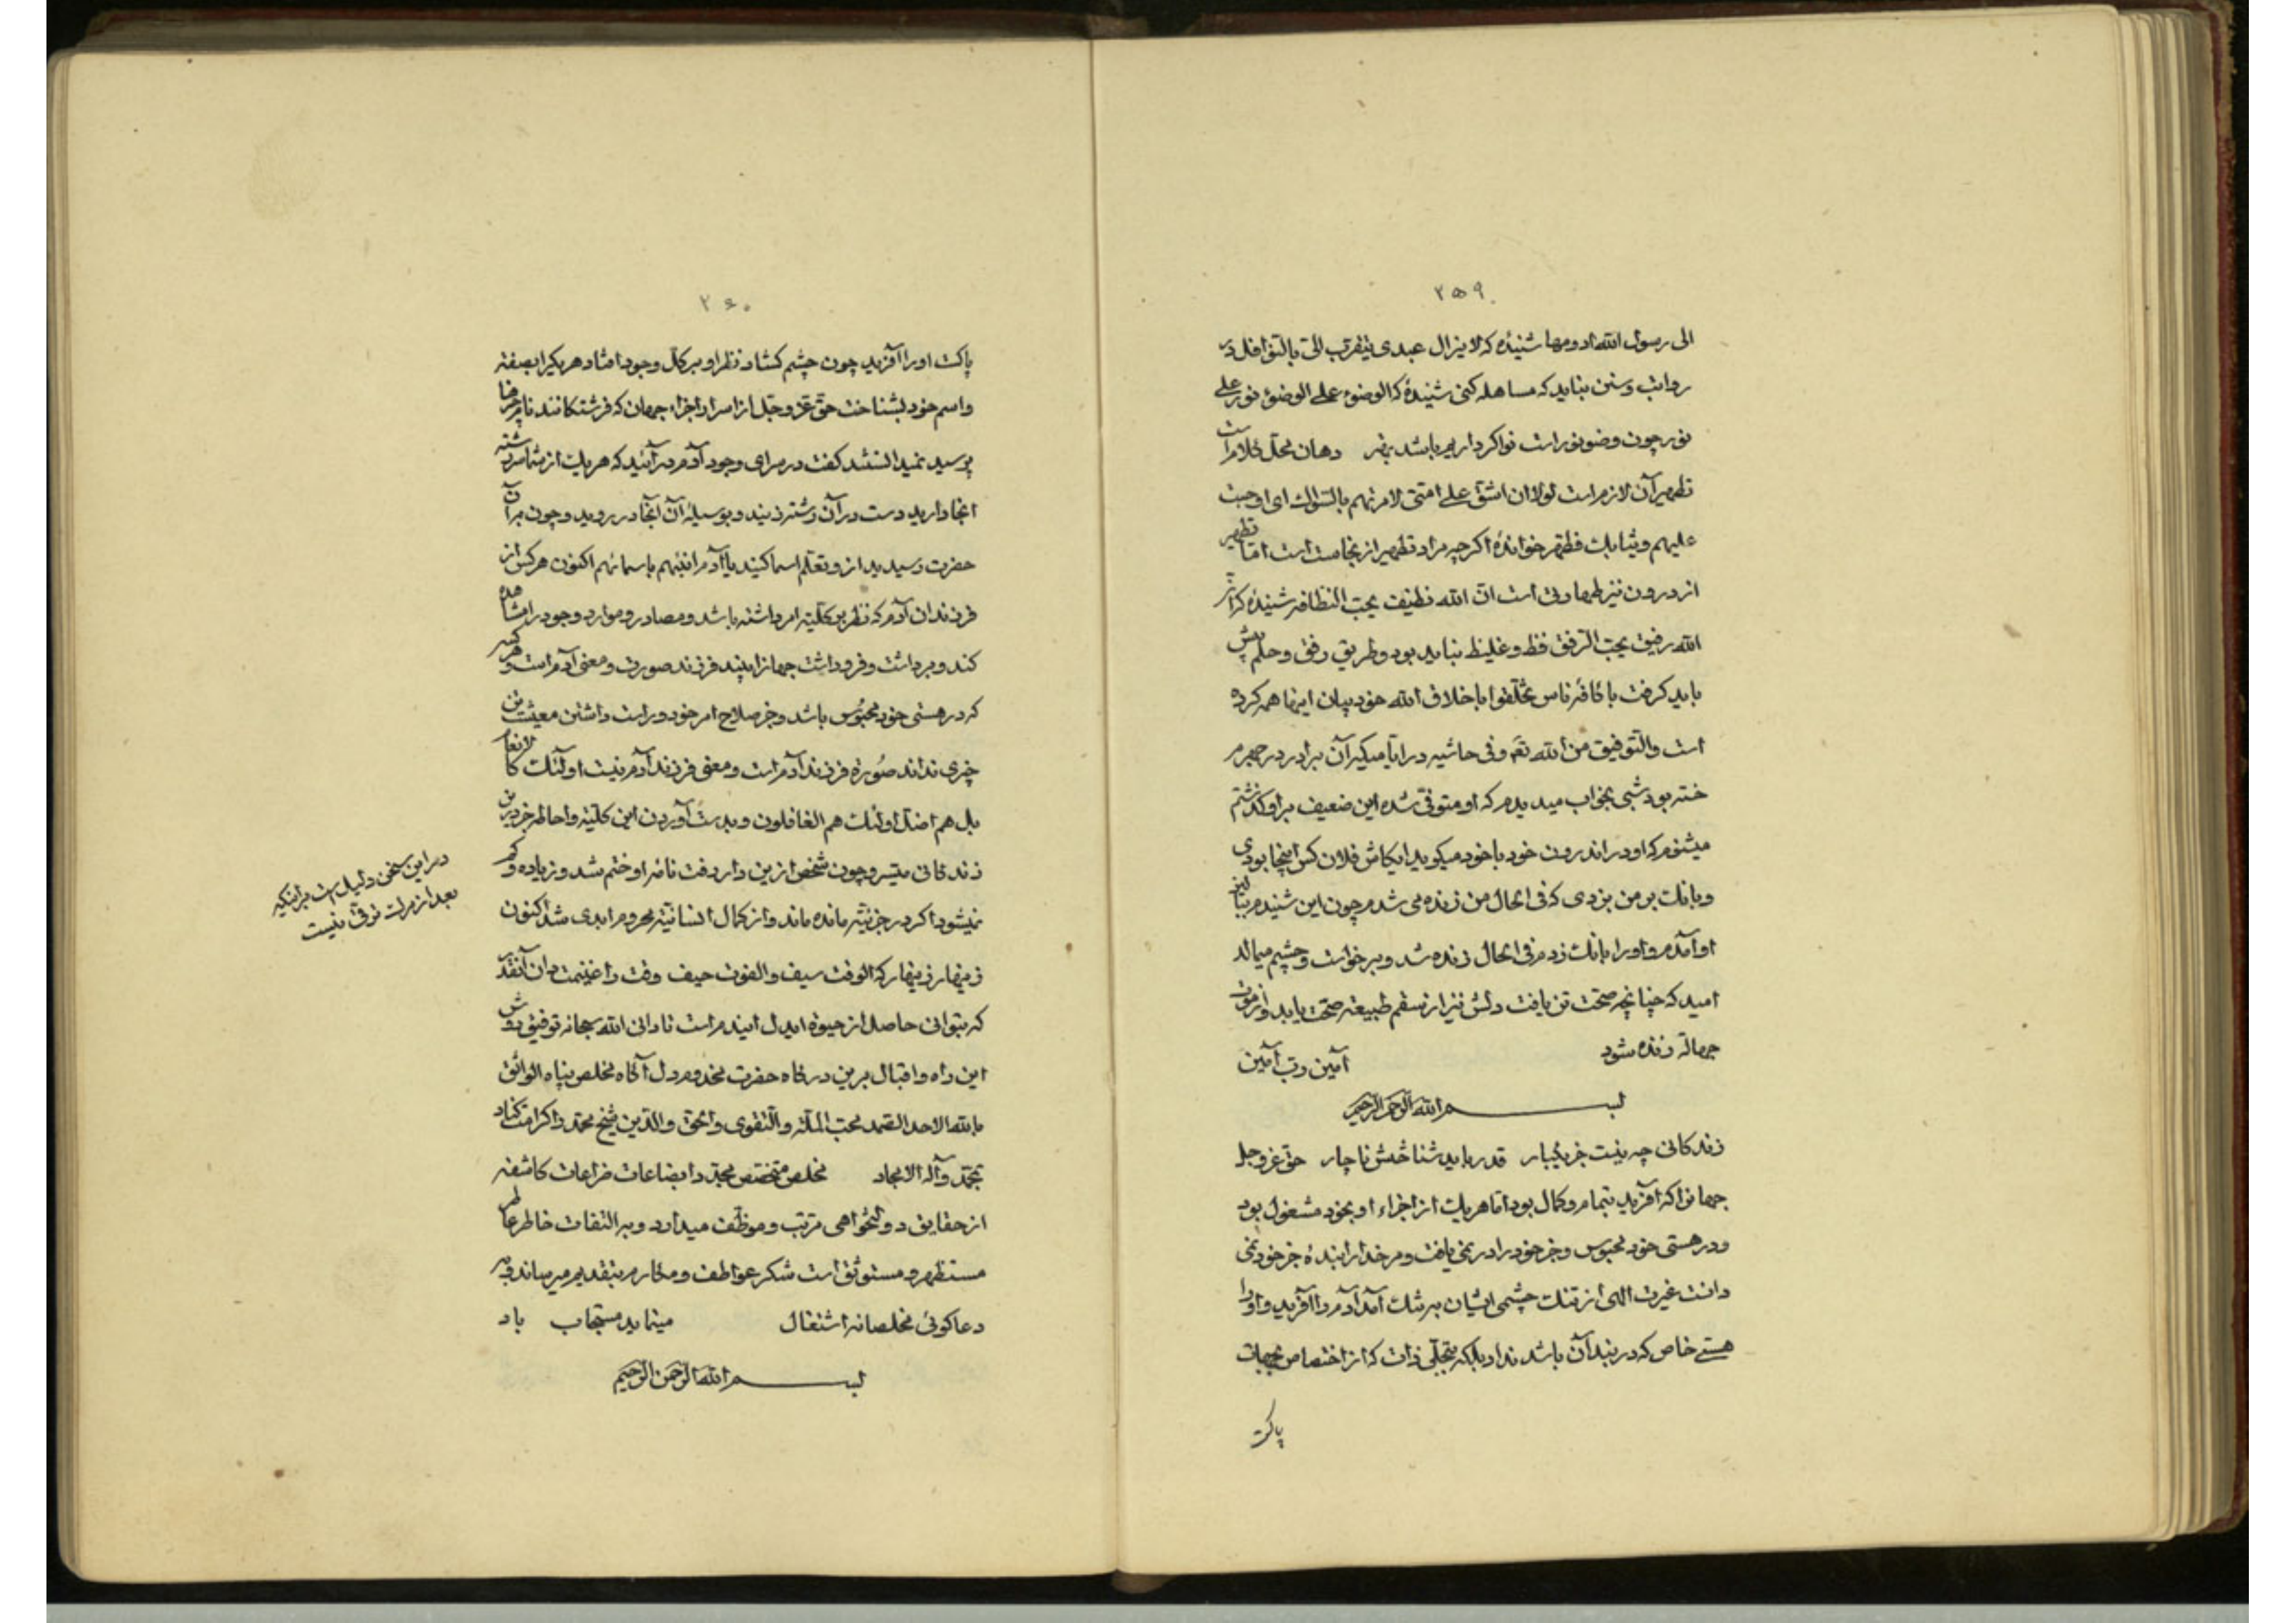 ۲۵۹
الی رسول الله ادومها شنیدهٔ که لایزال عبدی یتقرب الیّ بالنوافل در
رواتب و سنن نباید که مساهله کنی شنیدهٔ که الوضوء علی الوضوء نور علی
نور چون وضو نور است نوا کرداریم باشد بهتر دهان محل کلام است
تطهیر آن لازم است لولا ان اشقّ علی امتی لامرتهم بالسواک ای اوجبت
علیهم و ثیابک فطهر خواندهٔ اگرچه مراد تطهیر از نجاست است اما تطهیر
از درون نیز طهارتی است انّ الله نظیف یحب النظافة شنیدهٔ که انّ
الله رفیق یحب الرفق فظ و غلیظ نباید بود و طریق رفق و حلم پیش
باید گرفت با کافهٔ ناس تخلّقوا باخلاق الله خود بیان اینها همه کرده
است والتوفیق من الله تع و فی حاشیه در آیام یکی آن برادر در جهرم
خسته بود شبی بخواب میدیدم که او متوفّی شده این ضعیف بر او گذشتم
میشنوم که او در اندرون خود با خود میگوید ایکاش فلان کس اینجا بودی
و بانک بر من بزدی که فی الحال من زنده می شدم چون این شنیدم ببالین
او آمدم و او را بانک زدم فی الحال زنده شد و برخواست و چشم میمالد
امید که چنانچه صحّت تن یافت دلش نیز از سقم طبیعة صحّت یابد و از موت
جهالة زنده شود آمین رب آمین
بسم الله الرحمن الرحیم
زندکانی چه نیست جز یکبار قدر باید شناختش ناچار حق عز و جل
جهانرا که آفرید بتمام و کمال بود اما هریک از اجزاء او بخود مشغول بود
و در هستی خود محبوس و جز خود را در نمی یافت و مر خدا را بندهٔ جز خود نمی
دانست غیرت الهی از تنک چشمی ایشان برشک آمد آدم را آفرید و او را
هستی خاص که در بند آن باشد نداد بلکه بتجلّی ذات که از اختصاص بجهات
پاکست
۲۶۰
پاکست او را آفرید چون چشم کشاد نظر او بر کلّ وجود افتاد هر یکیرا بصفة
و اسم خود بشناخت حق عز و جل از اسرار اجزاء جهان که فرشتکانند نام هر جزء را
پرسید نمیدانستند گفت در سرای وجود آدم در آئید که هریک از شما سر رشته
انجا دارید دست در آن رشته زنید و بوسیلهٔ آن آنجا در روید و چون بر آن
حضرت رسیدید از و تعلّم اسما کنید یا آدم انبئهم باسمائهم اکنون هر کس از
فرزندان آدم که نظر بر کلّیة امر داشته باشد و مصادر و موارد وجود را مشاهده
کند و برداشت و فرو داشت جهانرا بیند فرزند صورت و معنی آدم است و هر کس
که در هستی خود محبوس باشد و جز صلاح امر خود و راست داشتن معیشت تن
چیزی نداند صورة فرزند آدم است و معنی فرزند آدم نیست اولئک کالانعام
بل هم اضلّ اولئک هم الغافلون و بدست آوردن این کلّیة و احاطه جز در این
زندکانی میّسر و چون شخص ازین دار رفت نامهٔ او ختم شد و زیاده و کم
نمیشود اکر در جزئیة مانده ماند و از کمال انسانیّة محروم ابدی شد اکنون
زینهار زینهار که الوقت سیف والفوت حیف وقت را غنیمت دان آنقدر
که بتوانی حاصل از حیوة ایدل ایندم است تا دانی الله سبحانه توفیق روش
این راه و اقبال برین درکاه حضرت مخدوم دل آکاه مخلص پناه الواثق
بالله الاحد الصمد محب الملّة والتقوی والحق والدین شیخ محمد را کرامت کناد
بمحمّد وآله الامجاد مخلص مختص محمّد را بضاعات ضراعات کاشفه
از حقایق دولتخواهی مرتب و موظّف میدارد و به التفات خاطر عاطر
مستظهر و مستوثق است شکر عواطف و مکارم بتقدیم میرساند و به
دعاکوئی مخلصانه اشتغال مینماید مستجاب باد
بسم الله الرحمن الرحیم
در این سخن دلیل است بر آنکه
بعد از مرک ترقی نیست